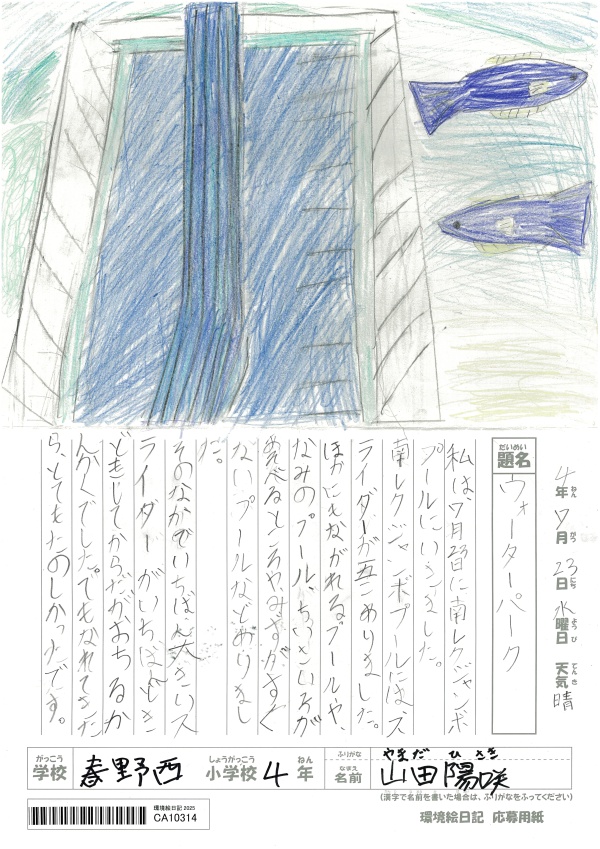 4年 7月 23日 水曜日 天気 晴
ねん がつ にち ようび てんき
だいめい
題名 ウォーターパーク
私は、7月23日に南レクジャンボ
プールにいきました。
南レクジャンボプールにはス
ライダーが五こありました。
ほかにもながれるプールや、
なみのプール、ちいさいこが
あそべるところや、みずがすく
ないプールなどありまし
た。
そのなかでいちばん大きいス
ライダーがいちばんどき
どきしてからだがおちるか
んかくでした。でもなれてきた
ら、とてもたのしかったです。
がっこう しょうがっこう ねん ふりがな やまだ ひさき
学校 春野西 小学校 4年 なまえ 名前 山田陽咲
(漢字で名前を書いた場合は、ふりがなをふってください)
環境絵日記 2025
CA10314
環境絵日記 応募用紙